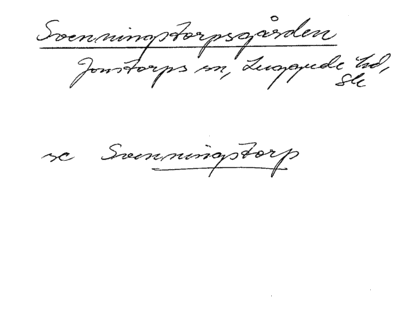 Svenningstorpsgården
Jonstorps sn, Luggude hd,
Sk
se Svenningstorp